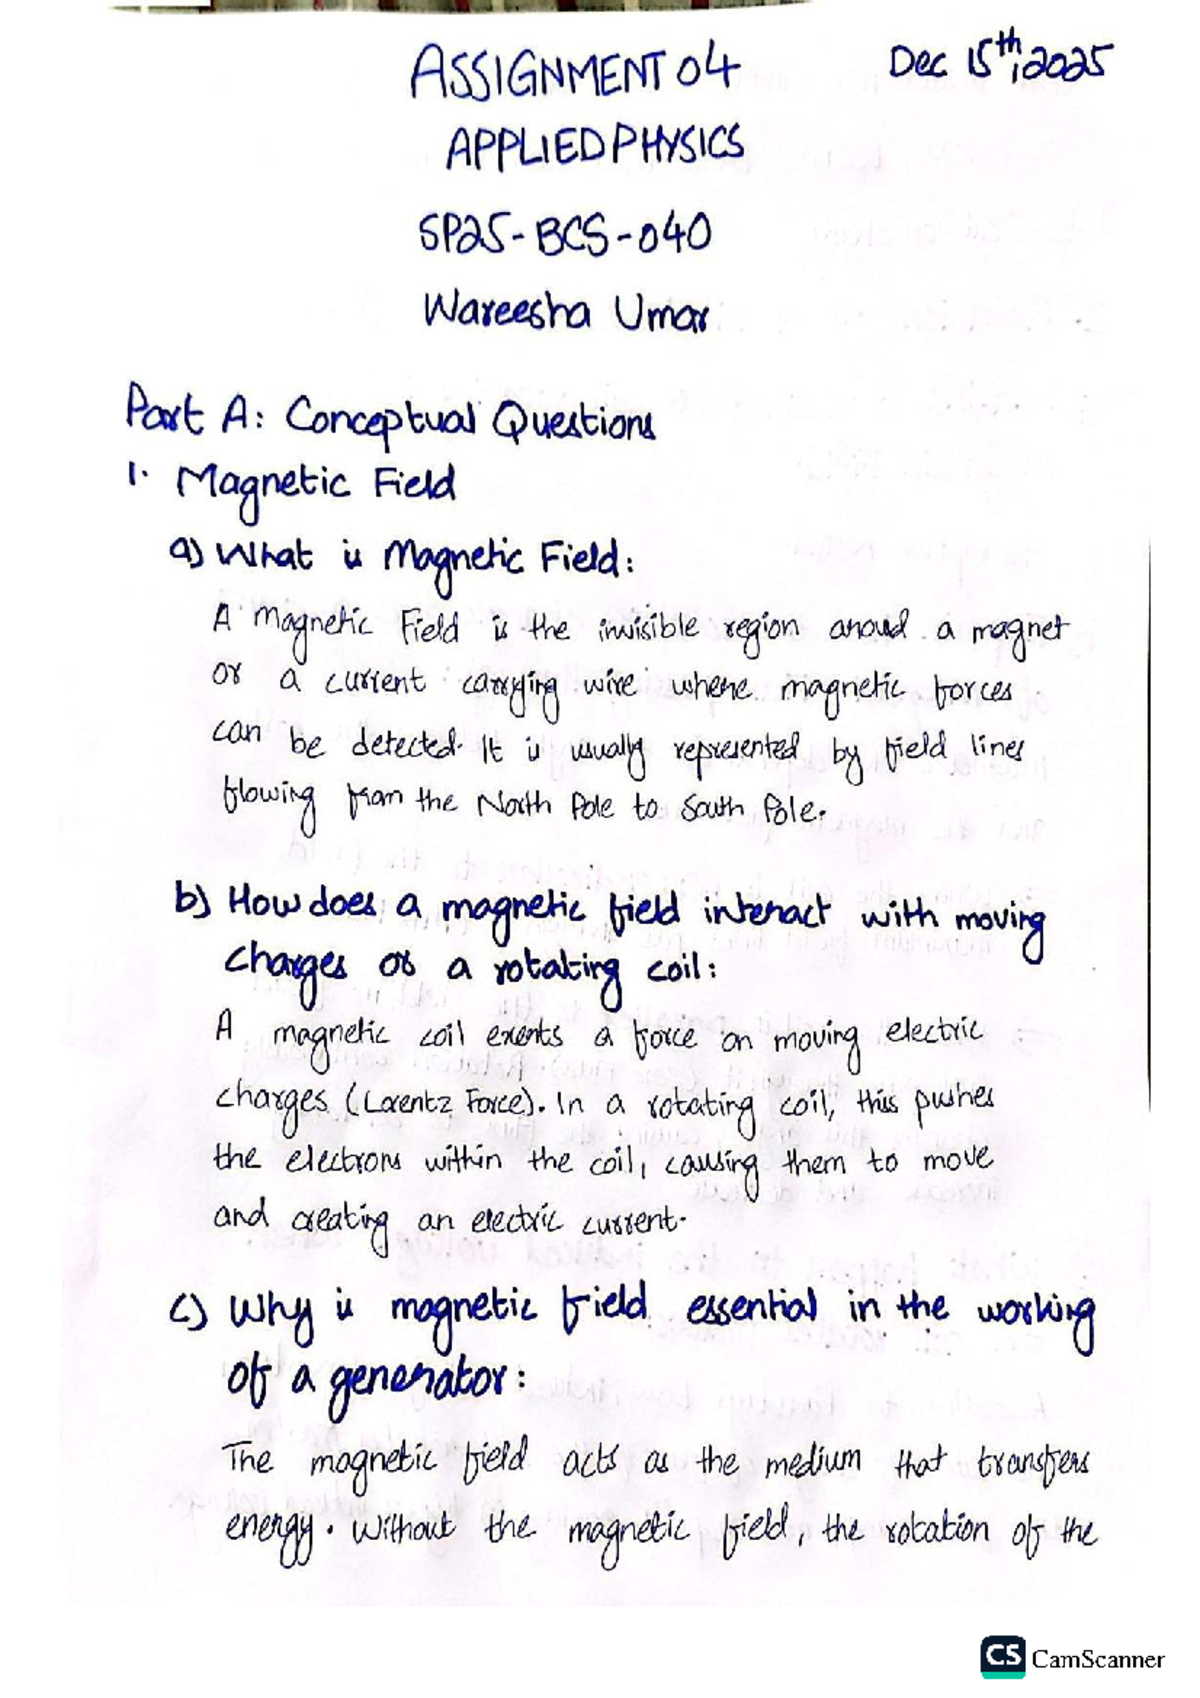 ASSIGNMENT 04
Dec 15th, 2025
APPLIED PHYSICS
SP25-BCS-040
Wareesha Umar
Part A: Conceptual Questions
1. Magnetic Field
a) What is Magnetic Field:
A Magnetic Field is the invisible region aroud a magnet
or a current carrying wire where magnetic forces
can be detected. It is usually represented by field lines
flowing from the North Pole to South Pole.
b) How does a magnetic field interact with moving
charges or a rotating coil:
A magnetic coil exerts a force on moving electric
charges (Lorentz Force). In a rotating coil, this pushes
the electrons within the coil, causing them to move
and creating an electric current.
c) Why is magnetic field essential in the working
of a generator:
The magnetic field acts as the medium that transfers
energy. Without the magnetic field, the rotation of the
CS CamScanner